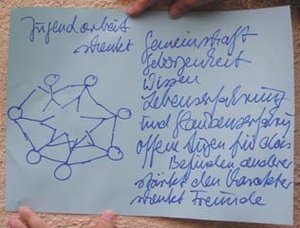 Jugendarbeit
schenkt
Gemeinschaft
Geborgenheit
Wissen
Lebenserfahrung
und Glaubenserfahrung
offene Augen für das
Befinden anderer
stärkt den Charakter
schenkt Freunde